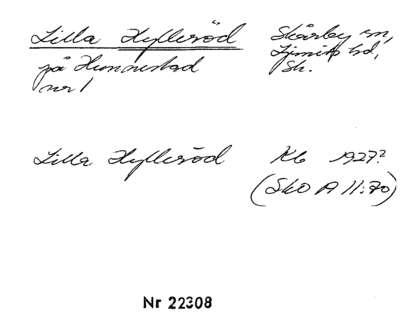 Lilla Hylleröd Skårby sn,
på Hunnestad Ljunits hd,
nr 1 Sk.
Lilla Hylleröd Kb 1927?
(SkO A 11:70)
Nr 22308